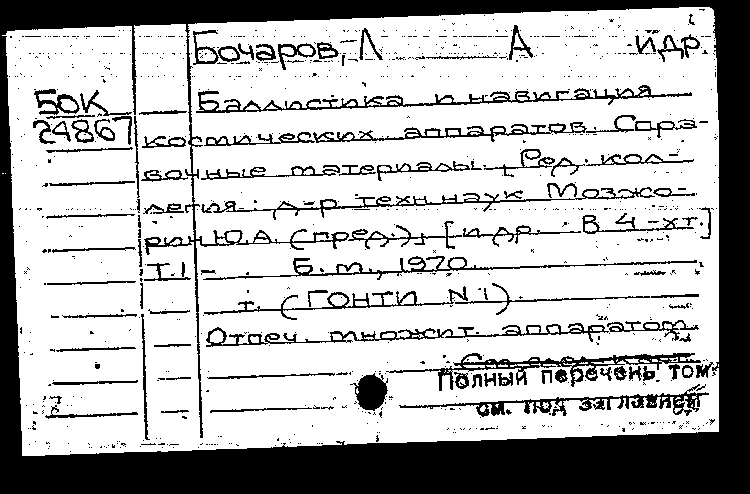 Бочаров, Л А и др.
БОК Баллистика и навигация
24867 космических аппаратов. Спра-
вочные материалы. [Ред. кол-
легия: д-р техн. наук Мозжо-
рин Ю.А. (пред.), [и др. В 4-хт.]
Т.1 - . Б.м., 1970.
т. (ГОНТИ N 1).
Отпеч. множит. аппаратом.
См. след. карт.
Полный перечень том
см. под заглавием